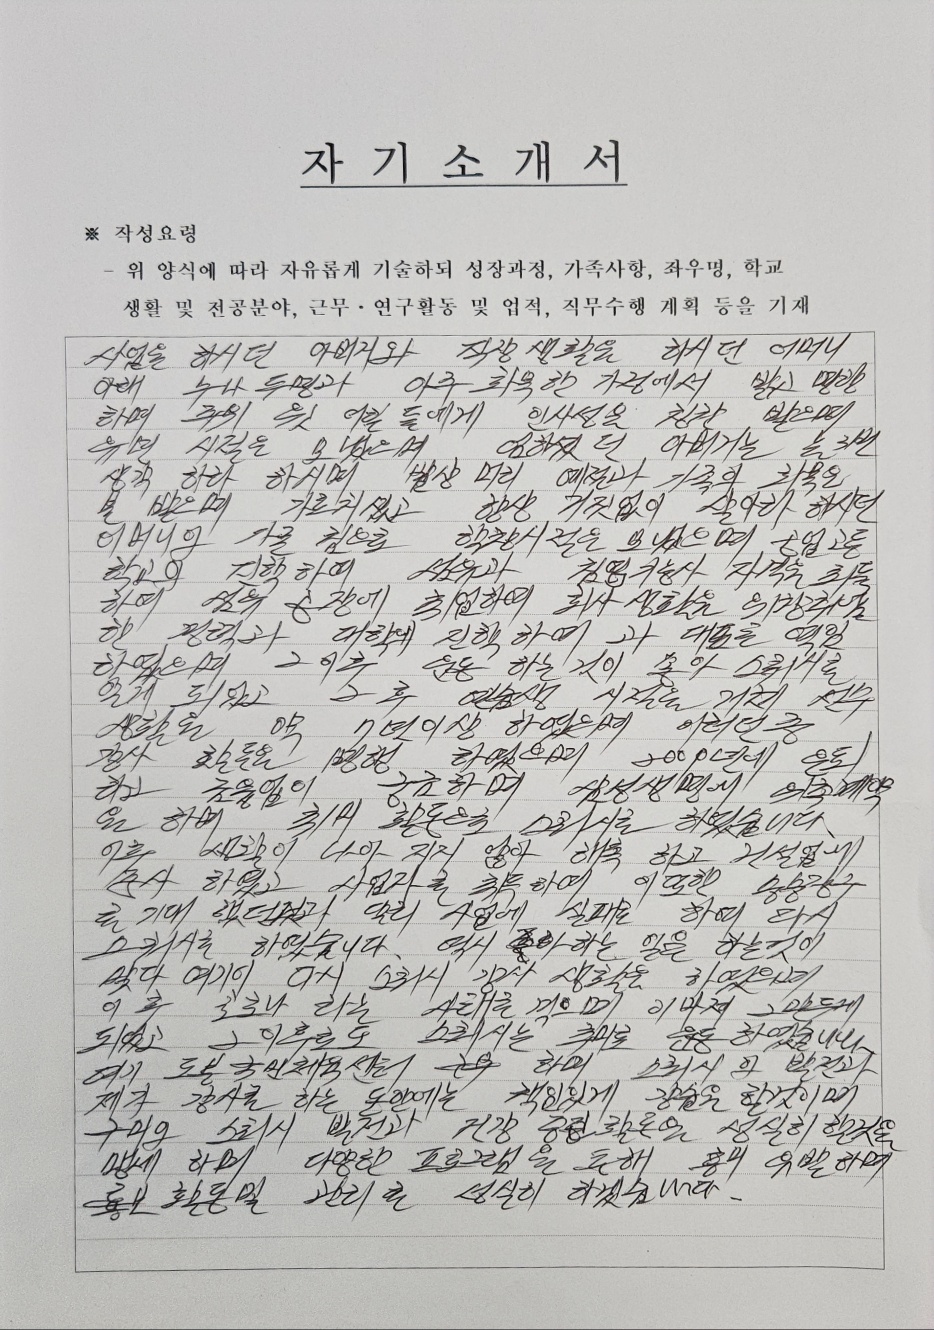 자 기 소 개 서
※ 작성요령
- 위 양식에 따라 자유롭게 기술하되 성장과정, 가족사항, 좌우명, 학교
생활 및 전공분야, 근무·연구활동 및 업적, 직무수행 계획 등을 기재
사업을 하시던 아버지와 직장생활을 하시던 어머니
아래 누나 두명과 아주 화목한 가정에서 밝고 명랑
하며 주위 웃 어른들에게 인사성을 칭찬 받으며
유년 시절을 보냈으며 엄하셨던 아버지는 늘
생각 하라 하시며 항상 머리 예절과 가족의 화목을
받으며 가르치셨고 항상 거짓없이 살아라 하시던
어머니의 가르침으로 학창시절을 보냈으며 공업고등
학교의 진학하여 섬유과 자격을 획득
하여 섬유 공장에 취업하여 회사생활을
한 대학에 진학하여 과 대표를 역임
하였으며 그 이후 운동 하는 것이 좋아 스쿼시를
알게 되었고 그 후 연습생 시절을 거쳐 선수
생활을 약 7년이상 하였으며 어린이
강사 활동을 병행 하였으며 2000년에
하고 삼성생명에
을 하며 취미 활동으로 스쿼시를 하였습니다.
이후 생활이 나아 지지 않아 하고 건설업에
종사 하였고 사업자를 취득하여 이 또한 승승장구
를 기대 했던것과 달리 사업에 실패를 하여 다시
스쿼시를 하였습니다. 역시 좋아 하는 일을 하는것이
맞다 여기어 다시 스쿼시 강사 생활을 하였으며
이후 코로나 라는 사태를 이마저 그만두게
되었고 그 이후로도 스쿼시는 취미로 운동 하였습니다.
여기 국민체육센터 근무 하며 스쿼시의 발전과
제가 강사를 하는 동안에는 책임있게 강습을 할것이며
구미의 스쿼시 발전과 건강 증진 활동을 성실히 할것을
맹세 하며 다양한 프로그램을 통해 흥미 유발하며
홍보 활동 및 관리를 성실히 하겠습니다.